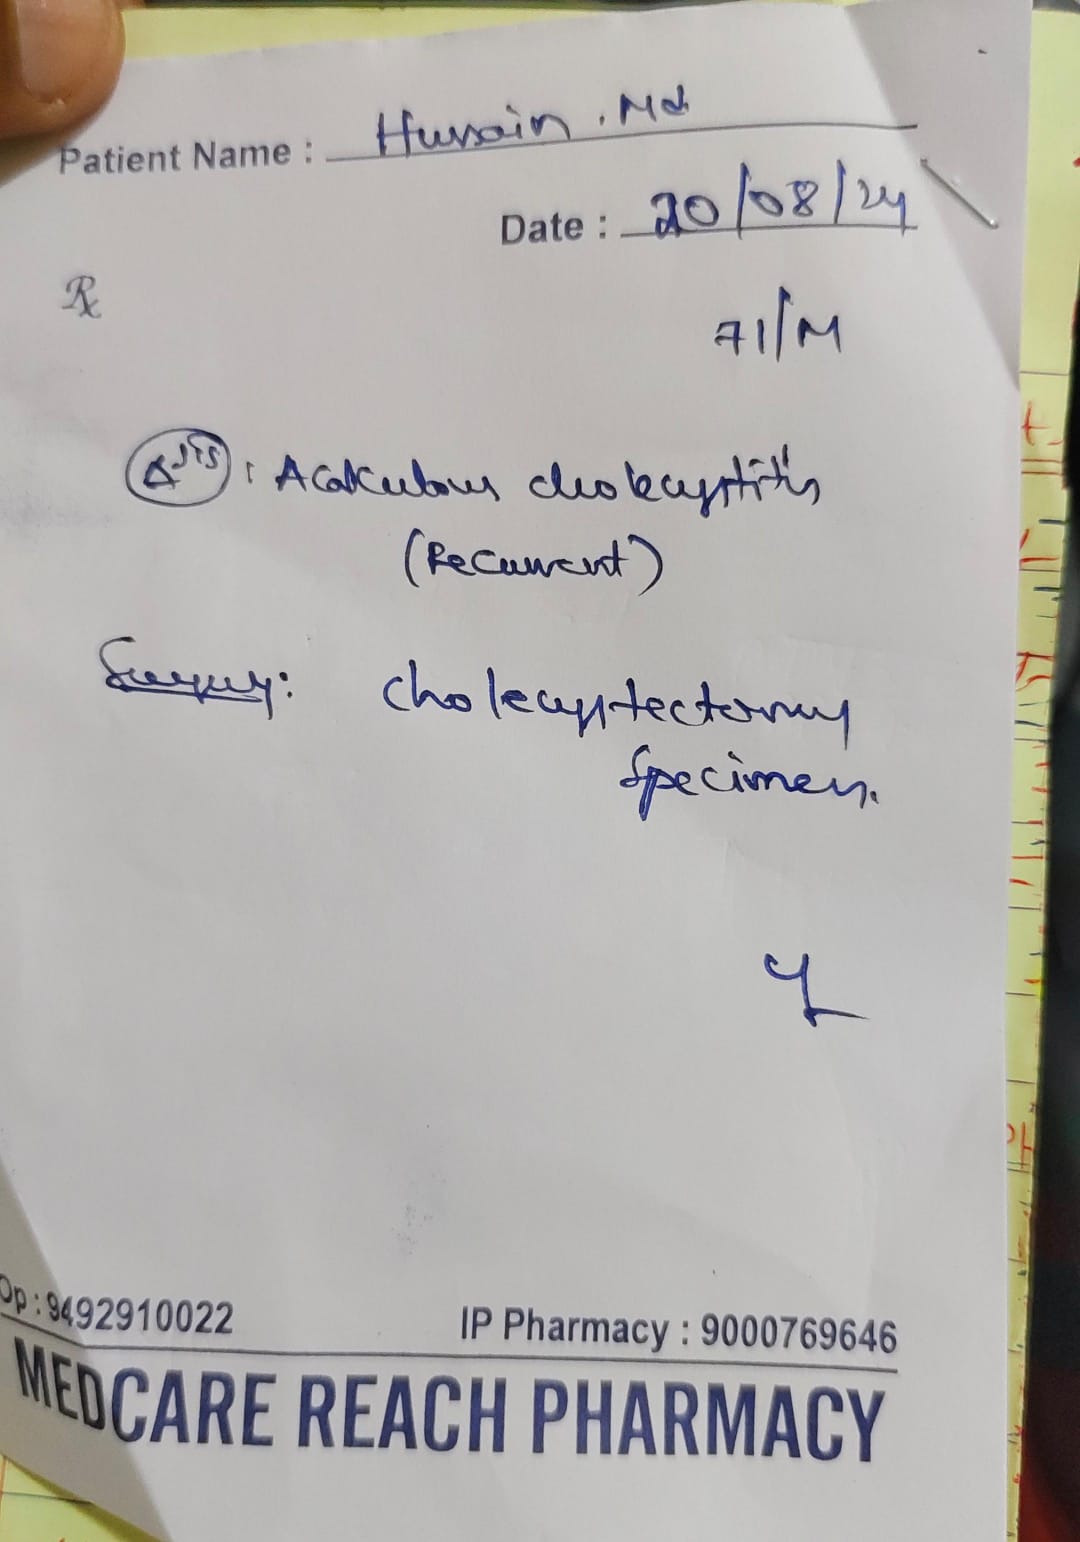 Patient Name : Hussain . Md
Date : 20/08/24
Rx
71/M
Δsis : Acalculous cholecystitis
(Recurrent)
Surgery: Cholecystectomy
Specimen.
Op : 9492910022 IP Pharmacy : 9000769646
MEDCARE REACH PHARMACY